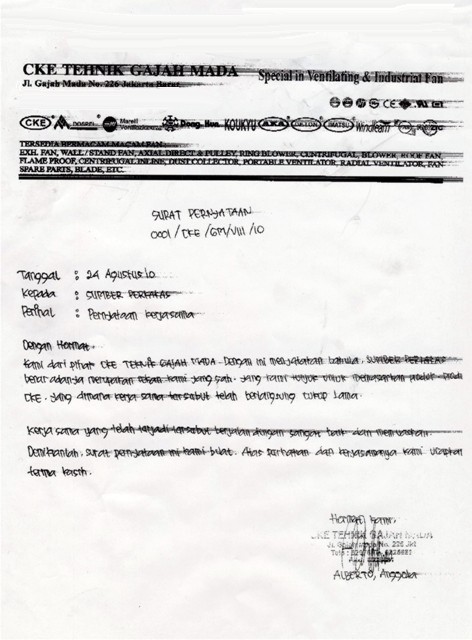 CKE TEHNIK GAJAH MADA
Special in Ventilating & Industrial Fan
Jl. Gajah Mada No. 226 Jakarta Barat
CKE Marelli Dong Kun KOUKYU AXA Windfeam
TERSEDIA BERMACAM MACAM FAN
EXH. FAN, WALL / STAND FAN, AXIAL DIRECT & PULLEY, RING BLOWER, CENTRIFUGAL, BLOWER, ROOF FAN,
FLAME PROOF, CENTRIFUGAL INLINE, DUST COLLECTOR, PORTABLE VENTILATOR, RADIAL VENTILATOR, FAN
SPARE PARTS, BLADE, ETC.
SURAT PERNYATAAN
0001 / CKE / GM/VIII /10
Tanggal : 24 Agustus 10
Kepada : SUMBER PERKAKAS
Perihal : Pernyataan kerjasama
Dengan Hormat,
Kami dari pihak CKE TEKNIK GAJAH MADA. Dengan ini menyatakan bahwa, SUMBER PERKAKAS
benar adanya merupakan rekan kami yang sah. yang kami tunjuk untuk memasarkan produk-produk
CKE. yang dimana kerja sama tersebut telah berlangsung cukup lama.
Kerja sama yang telah terjadi tersebut berjalan dengan sangat baik dan memuaskan.
Demikianlah, surat pernyataan ini kami buat. Atas perhatian dan kerjasamanya kami ucapkan
terima kasih.
Hormat kami,
CKE TEHNIK GAJAH MADA
Jl. Gajah Mada No. 226 Jkt
ALBERTO, Anggota